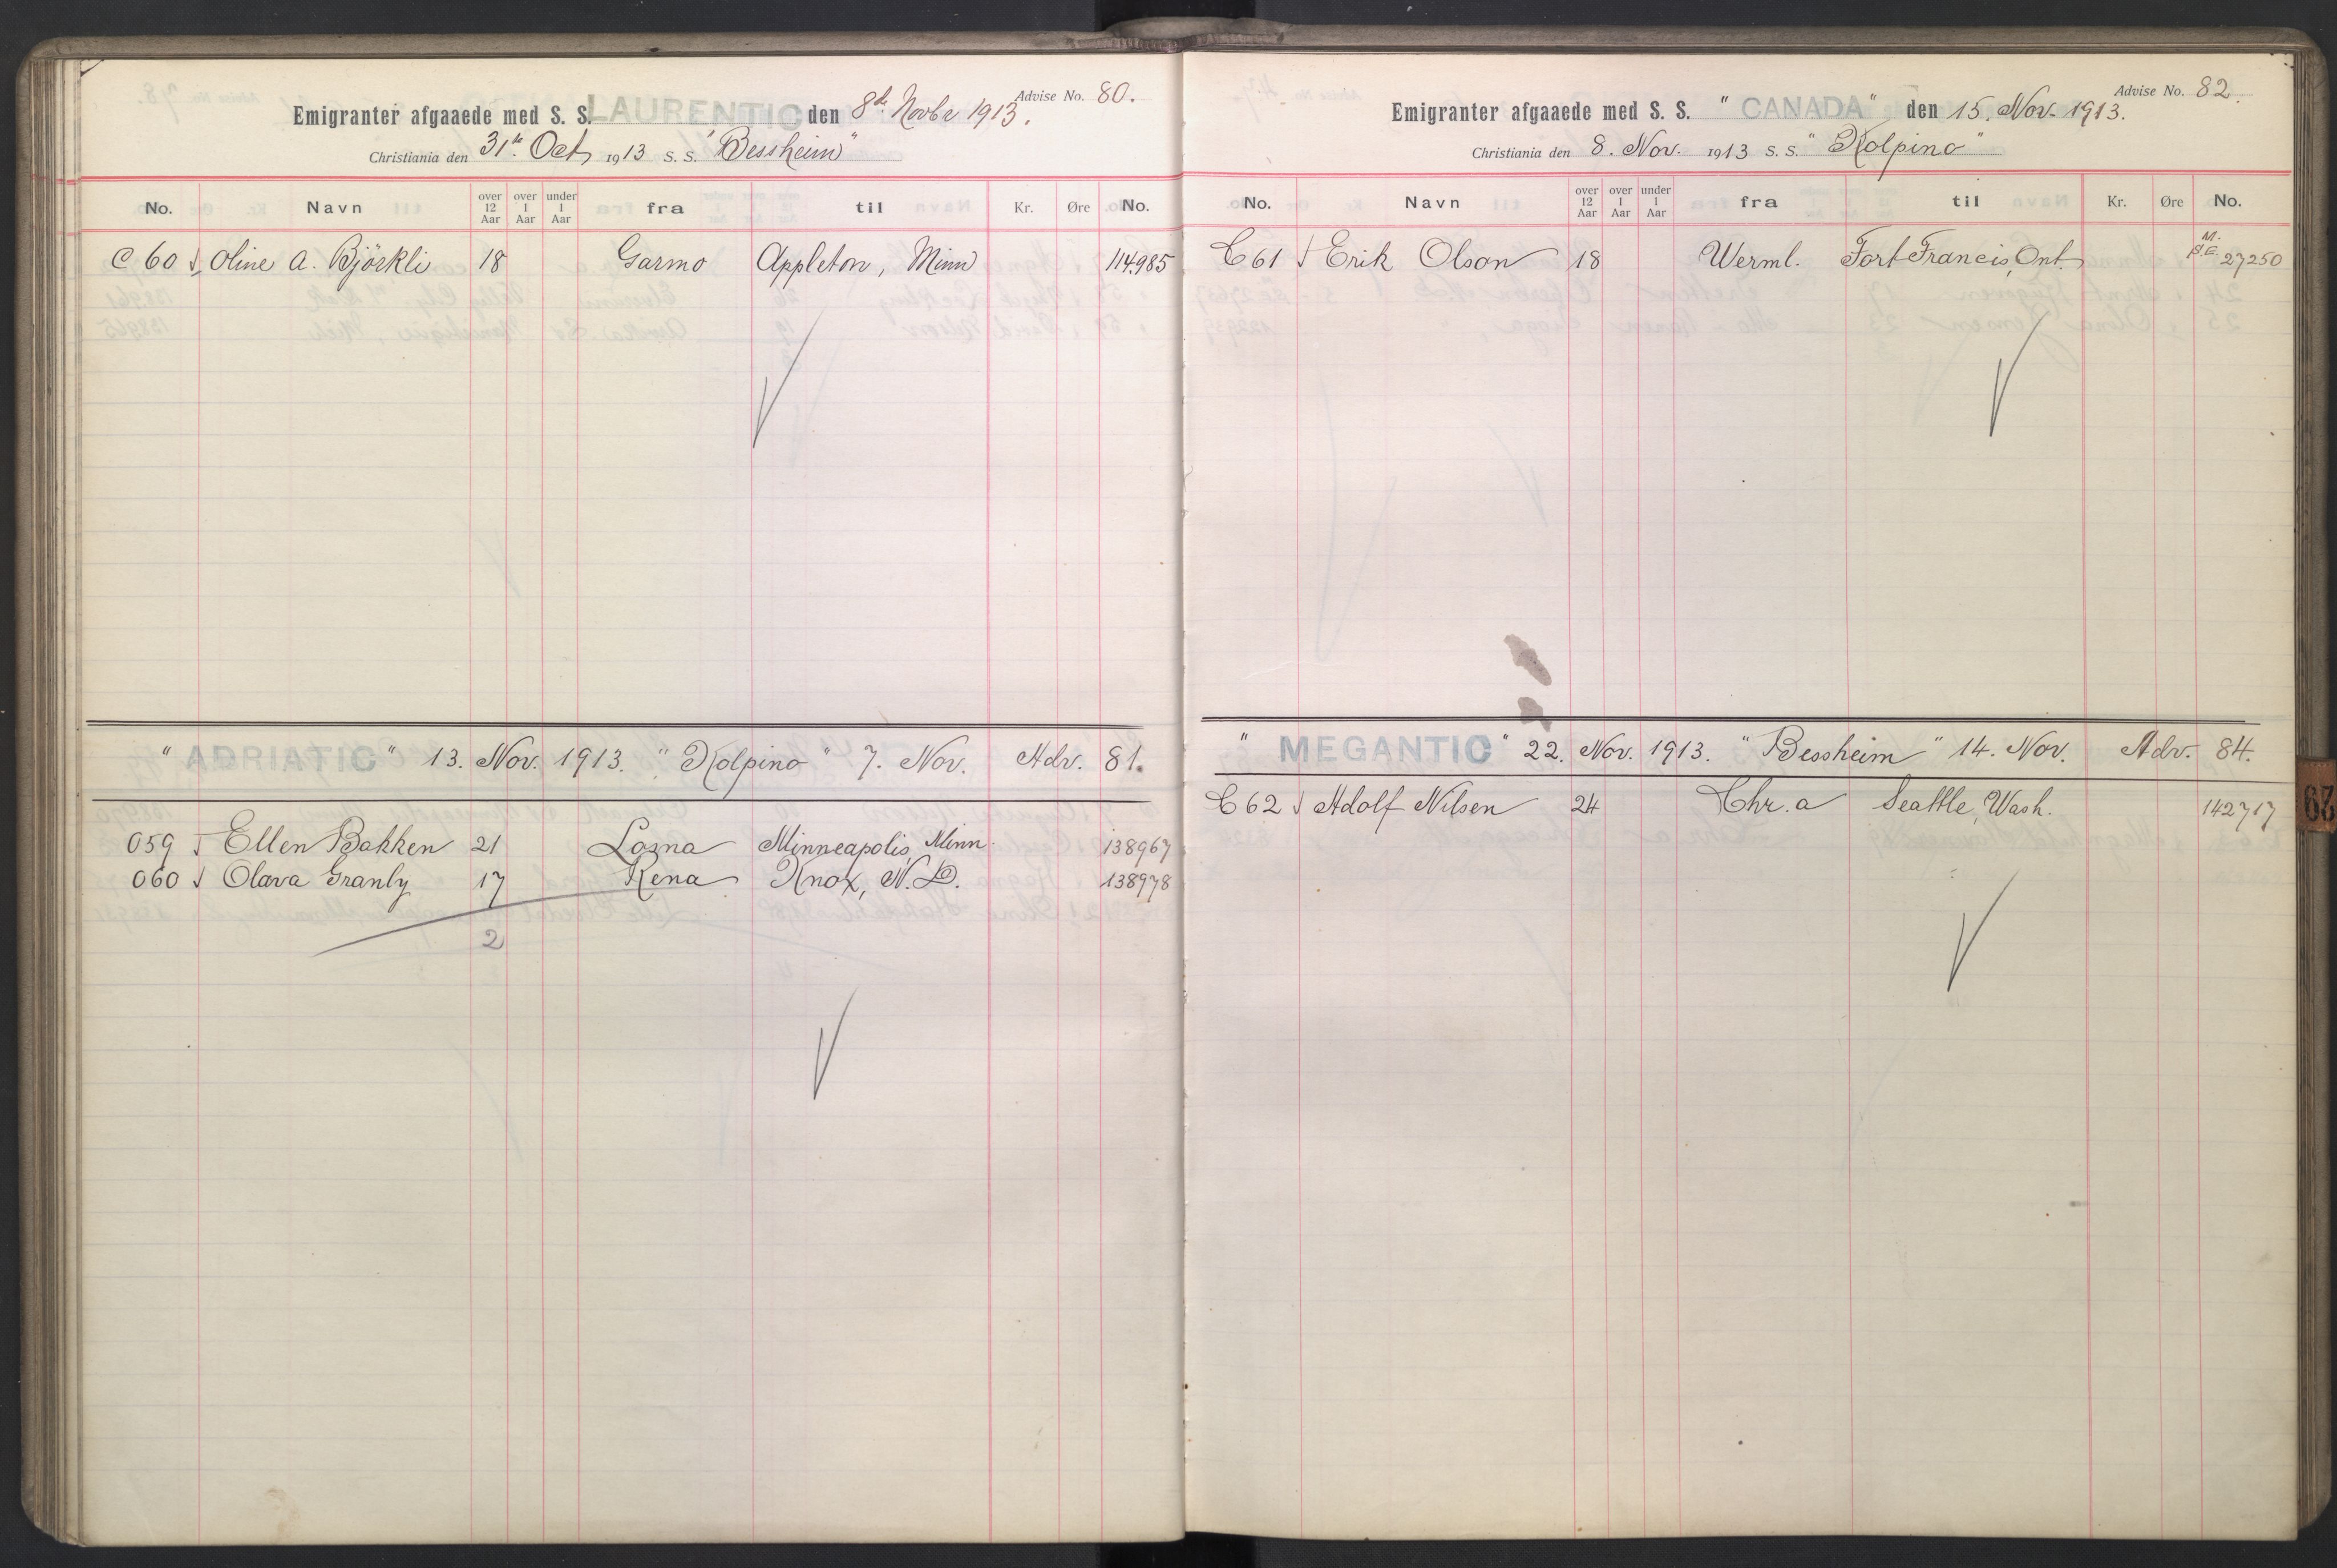 Advise No. 80.
Emigranter afgaaede med S. S. LAURENTIC den 8de Novbr 1913.
Christiania den 31te Oct 1913 S. S. "Bessheim"
No. Navn over 12 Aar over 1 Aar under 1 Aar fra til Kr. Øre No.
C 60 Oline A. Björkli 18 Garmo Appleton, Minn 114985
"ADRIATIC" 13. Nov. 1913. "Kolpino" 7. Nov. Adv. 81.
059 Ellen Bakken 21 Losna Minneapolis, Minn. 138967
060 Olava Granly 17 Rena Knox, N.D. 138978
2
Advise No. 82.
Emigranter afgaaede med S. S. "CANADA" den 15. Nov. 1913.
Christiania den 8. Nov. 1913 S. S. "Kolpino"
No. Navn over 12 Aar over 1 Aar under 1 Aar fra til Kr. Øre No.
C 61 Erik Olson 18 Werml. Fort Francis, Ont. 27250
"MEGANTIC" 22. Nov. 1913. "Bessheim" 14. Nov. Adv. 84.
C 62 Adolf Nilsen 24 Chr.a Seattle, Wash. 142717